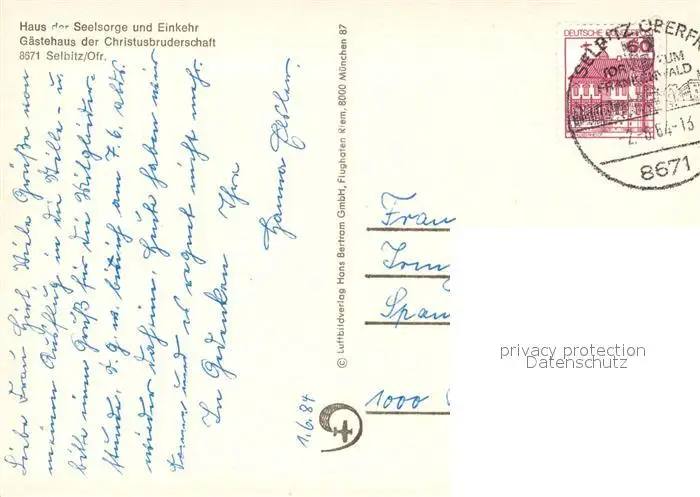 Haus der Seelsorge und Einkehr
Gästehaus der Christusbruderschaft
8671 Selbitz/Ofr.
Liebe Frau Hirt, Viele Grüße von
meinem Ausflug in die Stille - u.
bitte einen Gruß für die Mitglieder-
stunde, d. g. w. bin ich am 7.6. alts.
wieder daheim. Heute haben wir
Sonne und es regnet nicht mehr.
In Gedenken Ihre
Hanna
1.6.84
© Luftbildverlag Hans Bertram GmbH, Flughafen Riem, 8000 München 87
DEUTSCHE
60
SELBITZ, OBERFR
TOR ZUM
FRANKENWALD
-2.-6.84-13
8671
Frau
Irm
Span
1000
privacy protection
Datenschutz